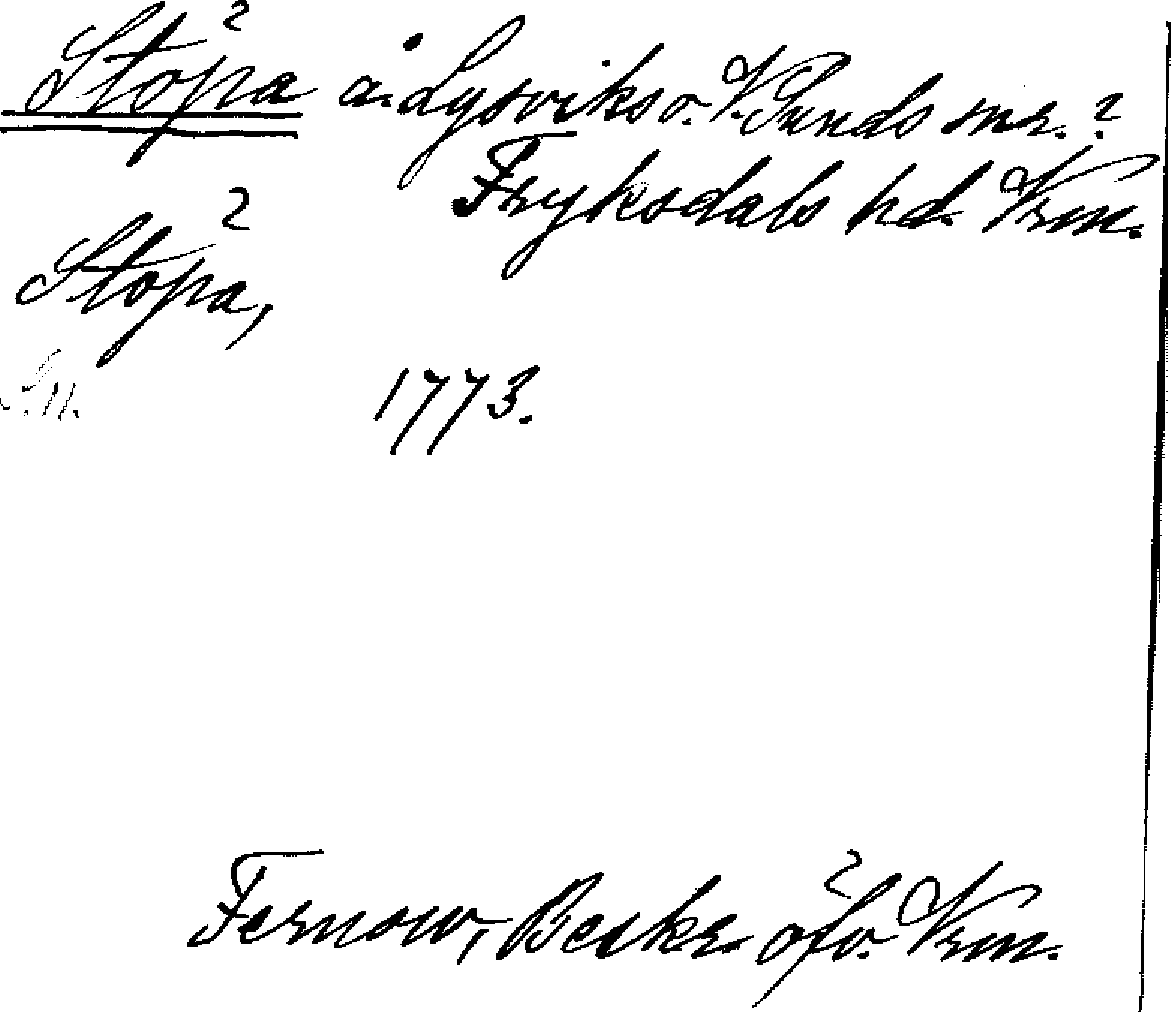 Stöpa å. Lysviks o. V. Sunds snr.?
Fryksdals hd. Vrm.
Stöpa,
1773.
Fernow, Beskr. öfv. Vrm.